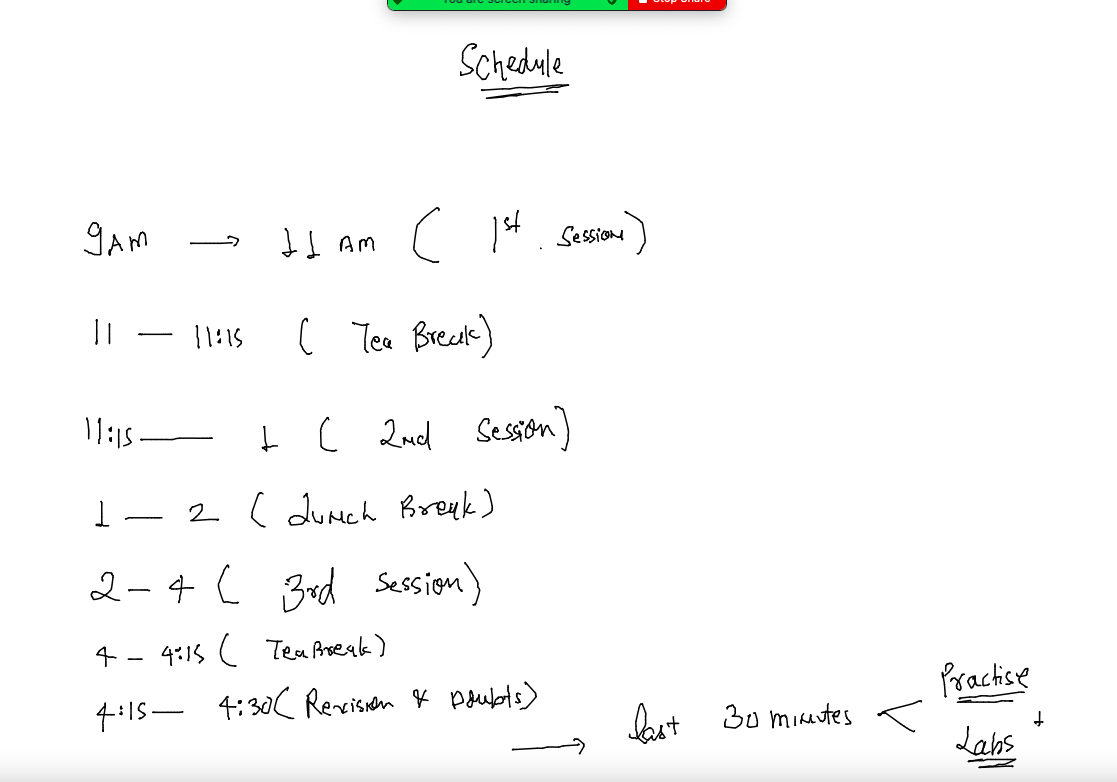 You are screen sharing Stop Share
Schedule
9AM → 11 AM ( 1st . Session)
11 — 11:15 ( Tea Break)
11:15 — 1 ( 2nd Session)
1 — 2 ( Lunch Break)
2 - 4 ( 3rd Session)
4 - 4:15 ( Tea Break)
4:15 — 4:30 ( Revision & Doubts)
→ last 30 minutes < Practise +
Labs